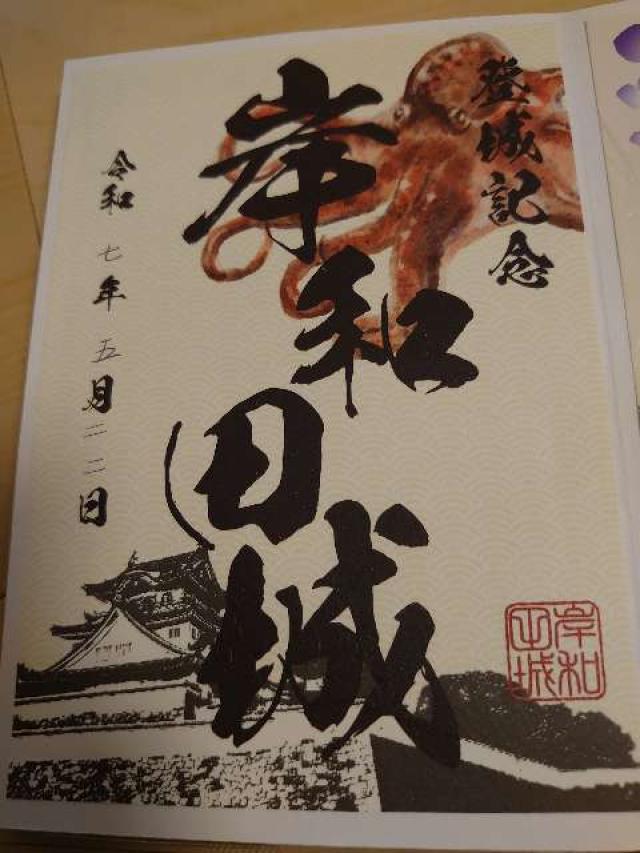 登城記念
岸和田城
令和七年五月二二日
岸和田城